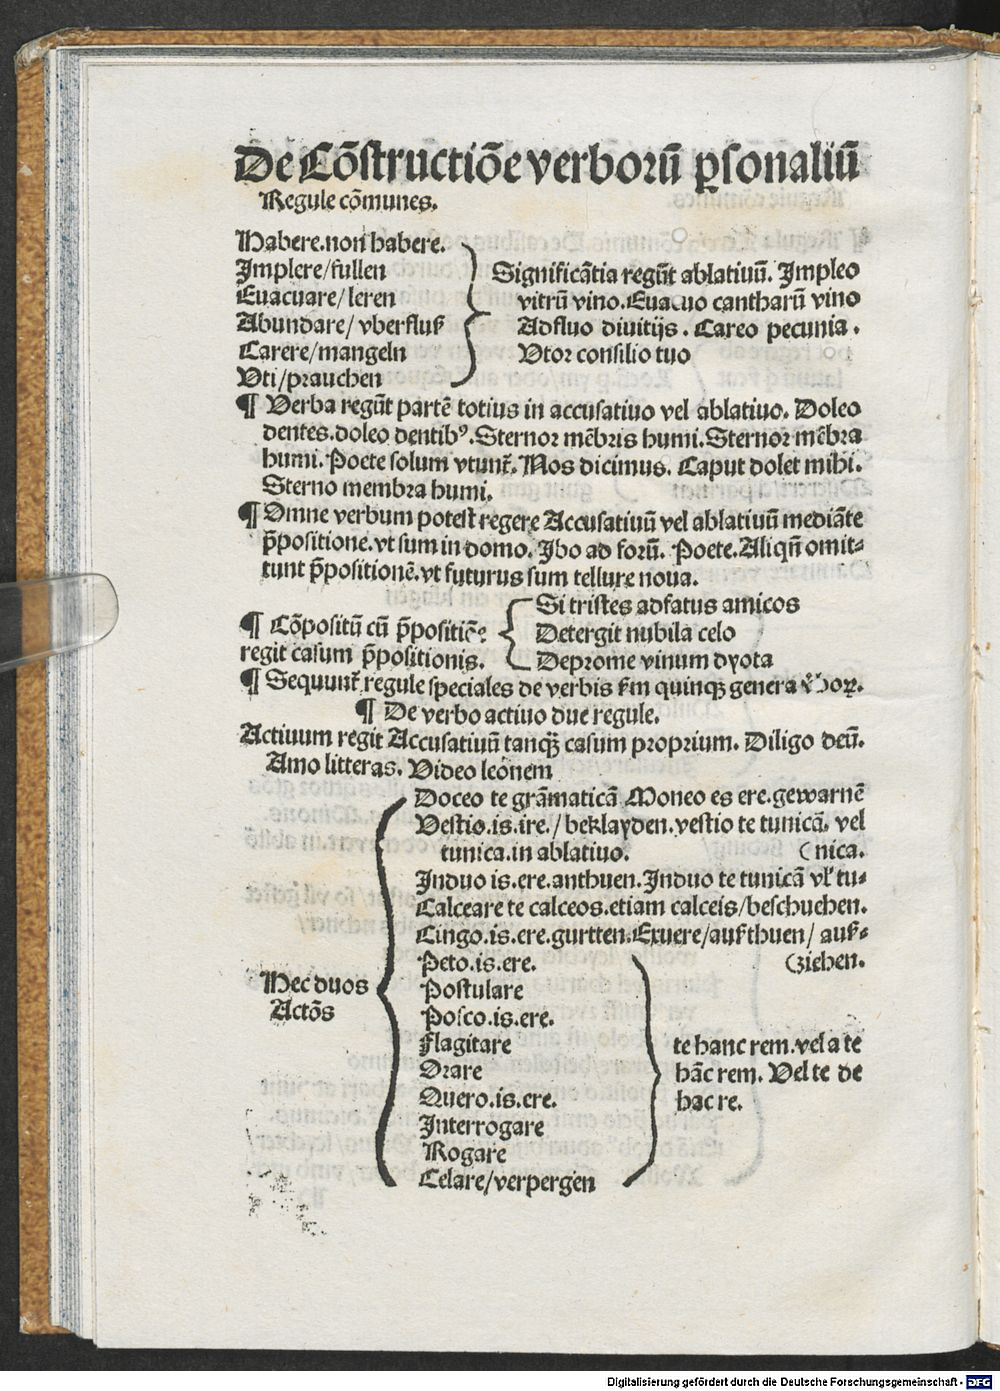 De Cōstructiōe verborū ꝑsonaliū
Regule cōmunes.
Habere.non habere.
Implere/fullen
Euacuare/leren
Abundare/vberfluß
Carere/mangeln
Uti/prauchen
Significātia regūt ablatiuū. Impleo
vitrū vino.Euacuo cantharū vino
Adfluo diuitijs. Careo pecunia.
Utor consilio tuo
¶ Verba regūt partē totius in accusatiuo vel ablatiuo. Doleo
dentes.doleo dentibꝰ.Sternor mēbris humi.Sternor mēbra
humi.Poete solum vtunt᷑.Nos dicimus. Caput dolet mihi.
Sterno membra humi.
¶ Omne verbum potest regere Accusatiuū vel ablatiuū mediāte
p̄positione.vt sum in domo. Ibo ad forū. Poete.Aliqn̄ omit-
tunt p̄positionē.vt futurus sum tellure noua.
¶ Cōpositū cū p̄positiōe
regit casum p̄positionis.
Si tristes adfatus amicos
Detergit nubila celo
Deprome vinum dyota
¶ Sequunt᷑ regule speciales de verbis km̄ quinqꝫ genera
¶ De verbo actiuo due regule.
Actiuum regit Accusatiuū tanqꝫ casum proprium. Diligo deū.
Amo litteras. Video leonem
Hec duos
Actōs
Doceo te grāmaticā Moneo es ere.gewarnē
Vestio.is.ire./beklayden.vestio te tunicā. vel
tunica.in ablatiuo. (nica.
Induo is.ere.anthuen.Induo te tunicā vl̓ tu-
Calceare te calceos.etiam calceis/beschuehen.
Cingo.is.ere.gurtten.Exuere/außthuen/auß-
Peto.is.ere. (ziehen.
Postulare
Posco.is.ere.
Flagitare
Orare
Quero.is.ere.
Interrogare
Rogare
Celare/verpergen
te hanc rem.vel a te
hāc rem. Vel te de
hac re.
Digitalisierung gefördert durch die Deutsche Forschungsgemeinschaft - DFG